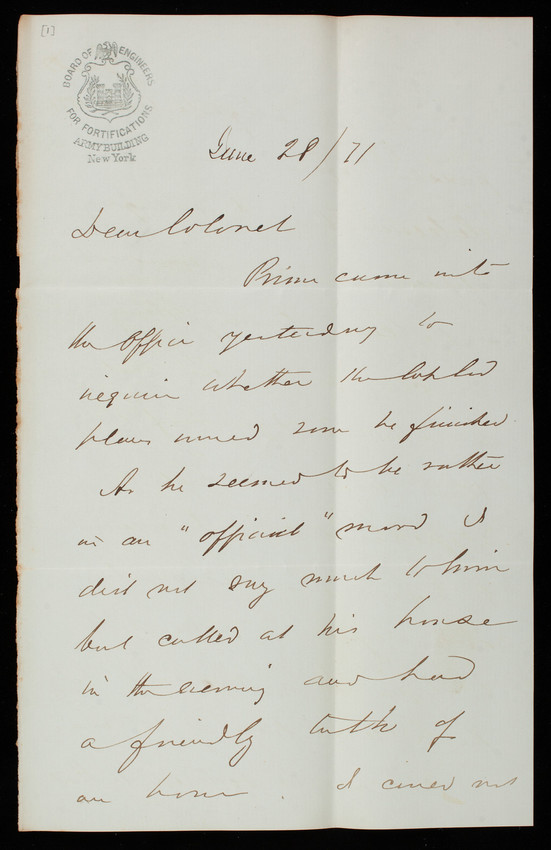 [1]
BOARD OF ENGINEERS
FOR FORTIFICATIONS
ARMY BUILDING
New York
June 28/71
Dear Colonel
Prime came into
the Office yesterday to
inquire whether the
plans would soon be finished
As he seemed to be rather
in an "official" mood I
did not say much to him
but called at his house
in the evening and had
a friendly talk of
an hour. I could not